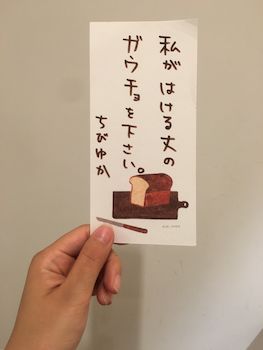 私がはける丈の
ガウチョを下さい。
ちびゆか